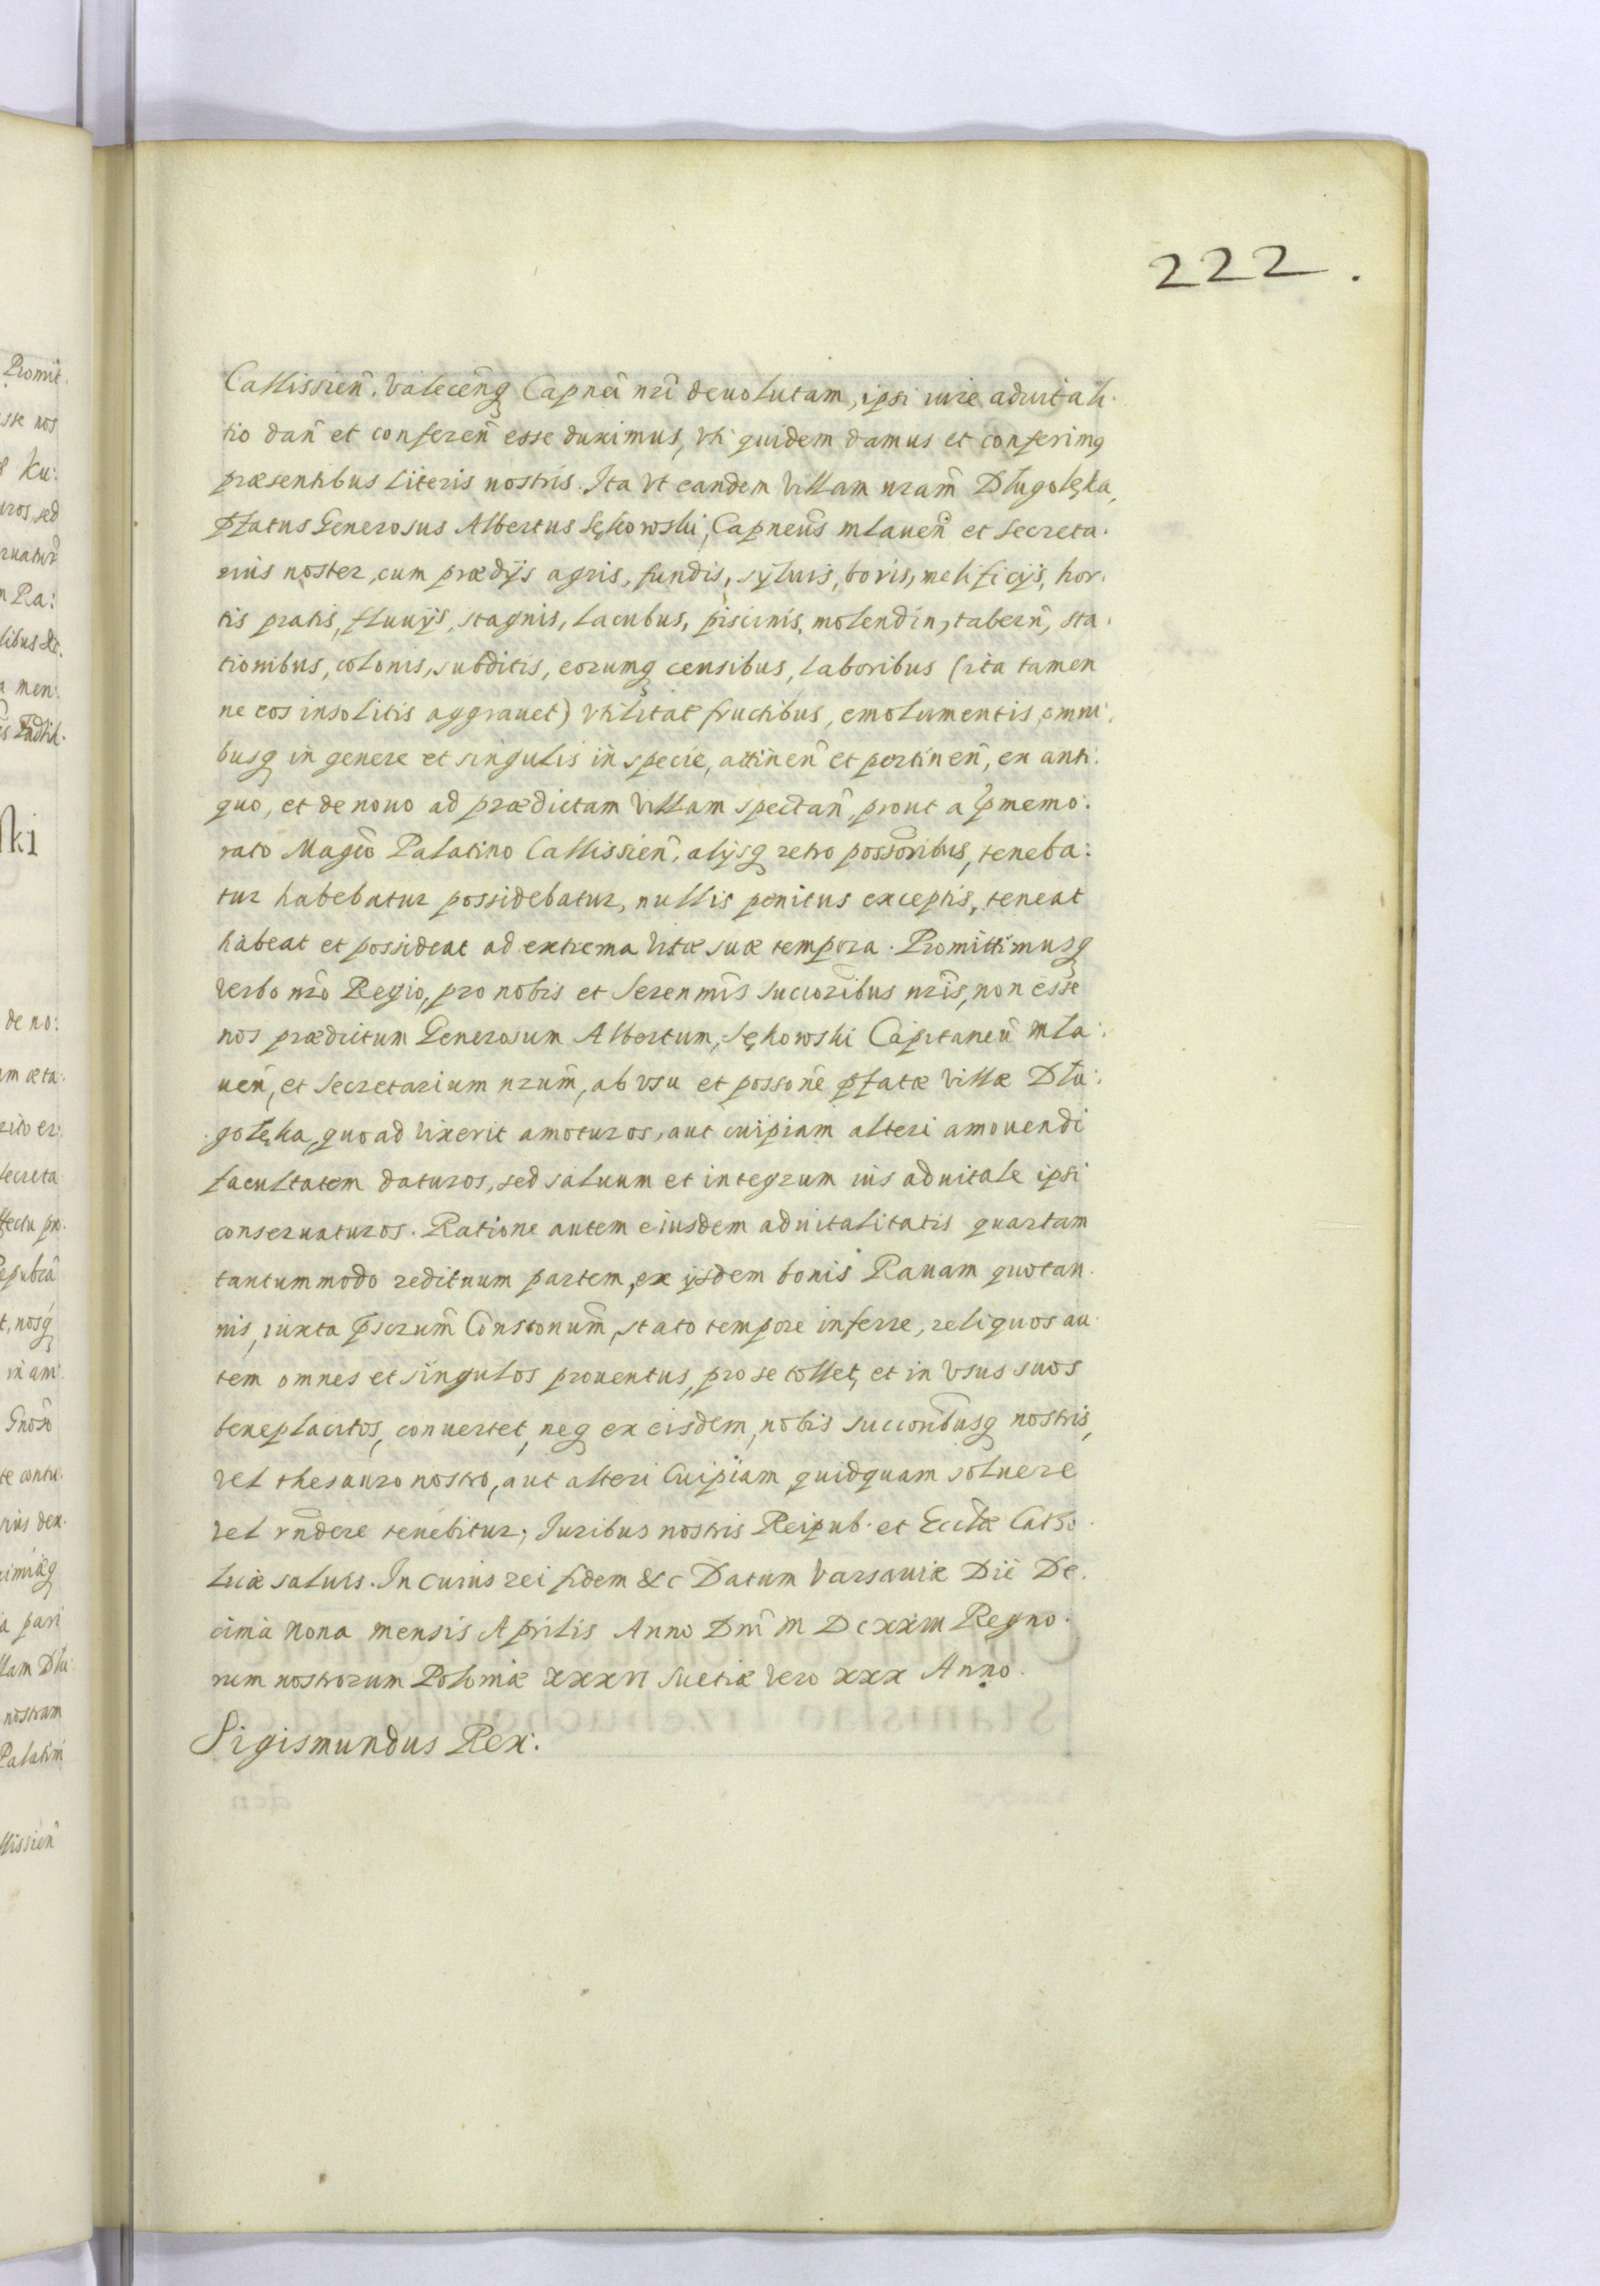 222.
Callissien̄. Valecen̄q Capnei nri deuolutam, ipsi iure aduitali.
tio dan̄ et conferen̄ esse duximus, vti quidem damus et conferimq
præsentibus literis nostris. Ita vt eandem villam nram̄ Długołęka,
pfatus Generosus Albertus Sękowski, Capneus mlauen̄ et Secreta.
rius noster, cum prædijs agris, fundis, syluis, boris, melificijs, hor.
tis pratis, fluuijs, stagnis, lacubus, piscinis, molendin, tabern̄, sta.
tionibus, colonis, subditis, eorumq censibus, laboribus (ita tamen
ne eos insolitis aggrauet) vtilitat fructibus, emolumentis, omni:
busq in genere et singulis in specie, attinen̄ et pertinen̄, ex anti:
quo, et de nouo ad prædictam villam spectan̄, prout a pmemo:
rato Magco Palatino Callissien̄, alijsq retro possoribus, teneba:
tur habebatur possidebatur, nullis penitus exceptis, teneat
habeat et possideat ad extrema vitæ suæ tempora. Promittimusq
verbo nro Regio, pro nobis et Serenmis succoribus nris, non esse
nos prædictum Generosum Albertum, Sękowski Capitaneū Mla:
uen̄, et Secretarium nrum̄, ab vsu et possone pfatæ villæ Dłu:
gołęka, quoad vixerit amoturos, aut cuipiam alteri amouendi
facultatem daturos, sed saluum et integrum ius aduitale ipsi
conseruaturos. Ratione autem eiusdem aduitalitatis quartam
tantummodo redituum partem, ex ijsdem bonis Rauam quotan.
nis, iuxta pscrum̄ Constonum̄, stato tempore inferre, reliquos au.
tem omnes et singulos prouentus, pro se tollet, et in vsus suos
beneplacitos, conuertet, neq ex eisdem, nobis succoribusq nostris,
vel thesauro nostro, aut alteri Cuipiam quidquam soluere
vel rn̄dere tenebitur; Iuribus nostris Reipub. et Ecclæ Catho.
licæ saluis. In cuius rei fidem &c Datum Varsauiæ Die De.
cima Nona mensis Aprilis Anno Dnī M DCxxiii Regno.
rum nostrorum Poloniæ xxxvi Suetiæ vero xxx Anno.
Sigismundus Rex.